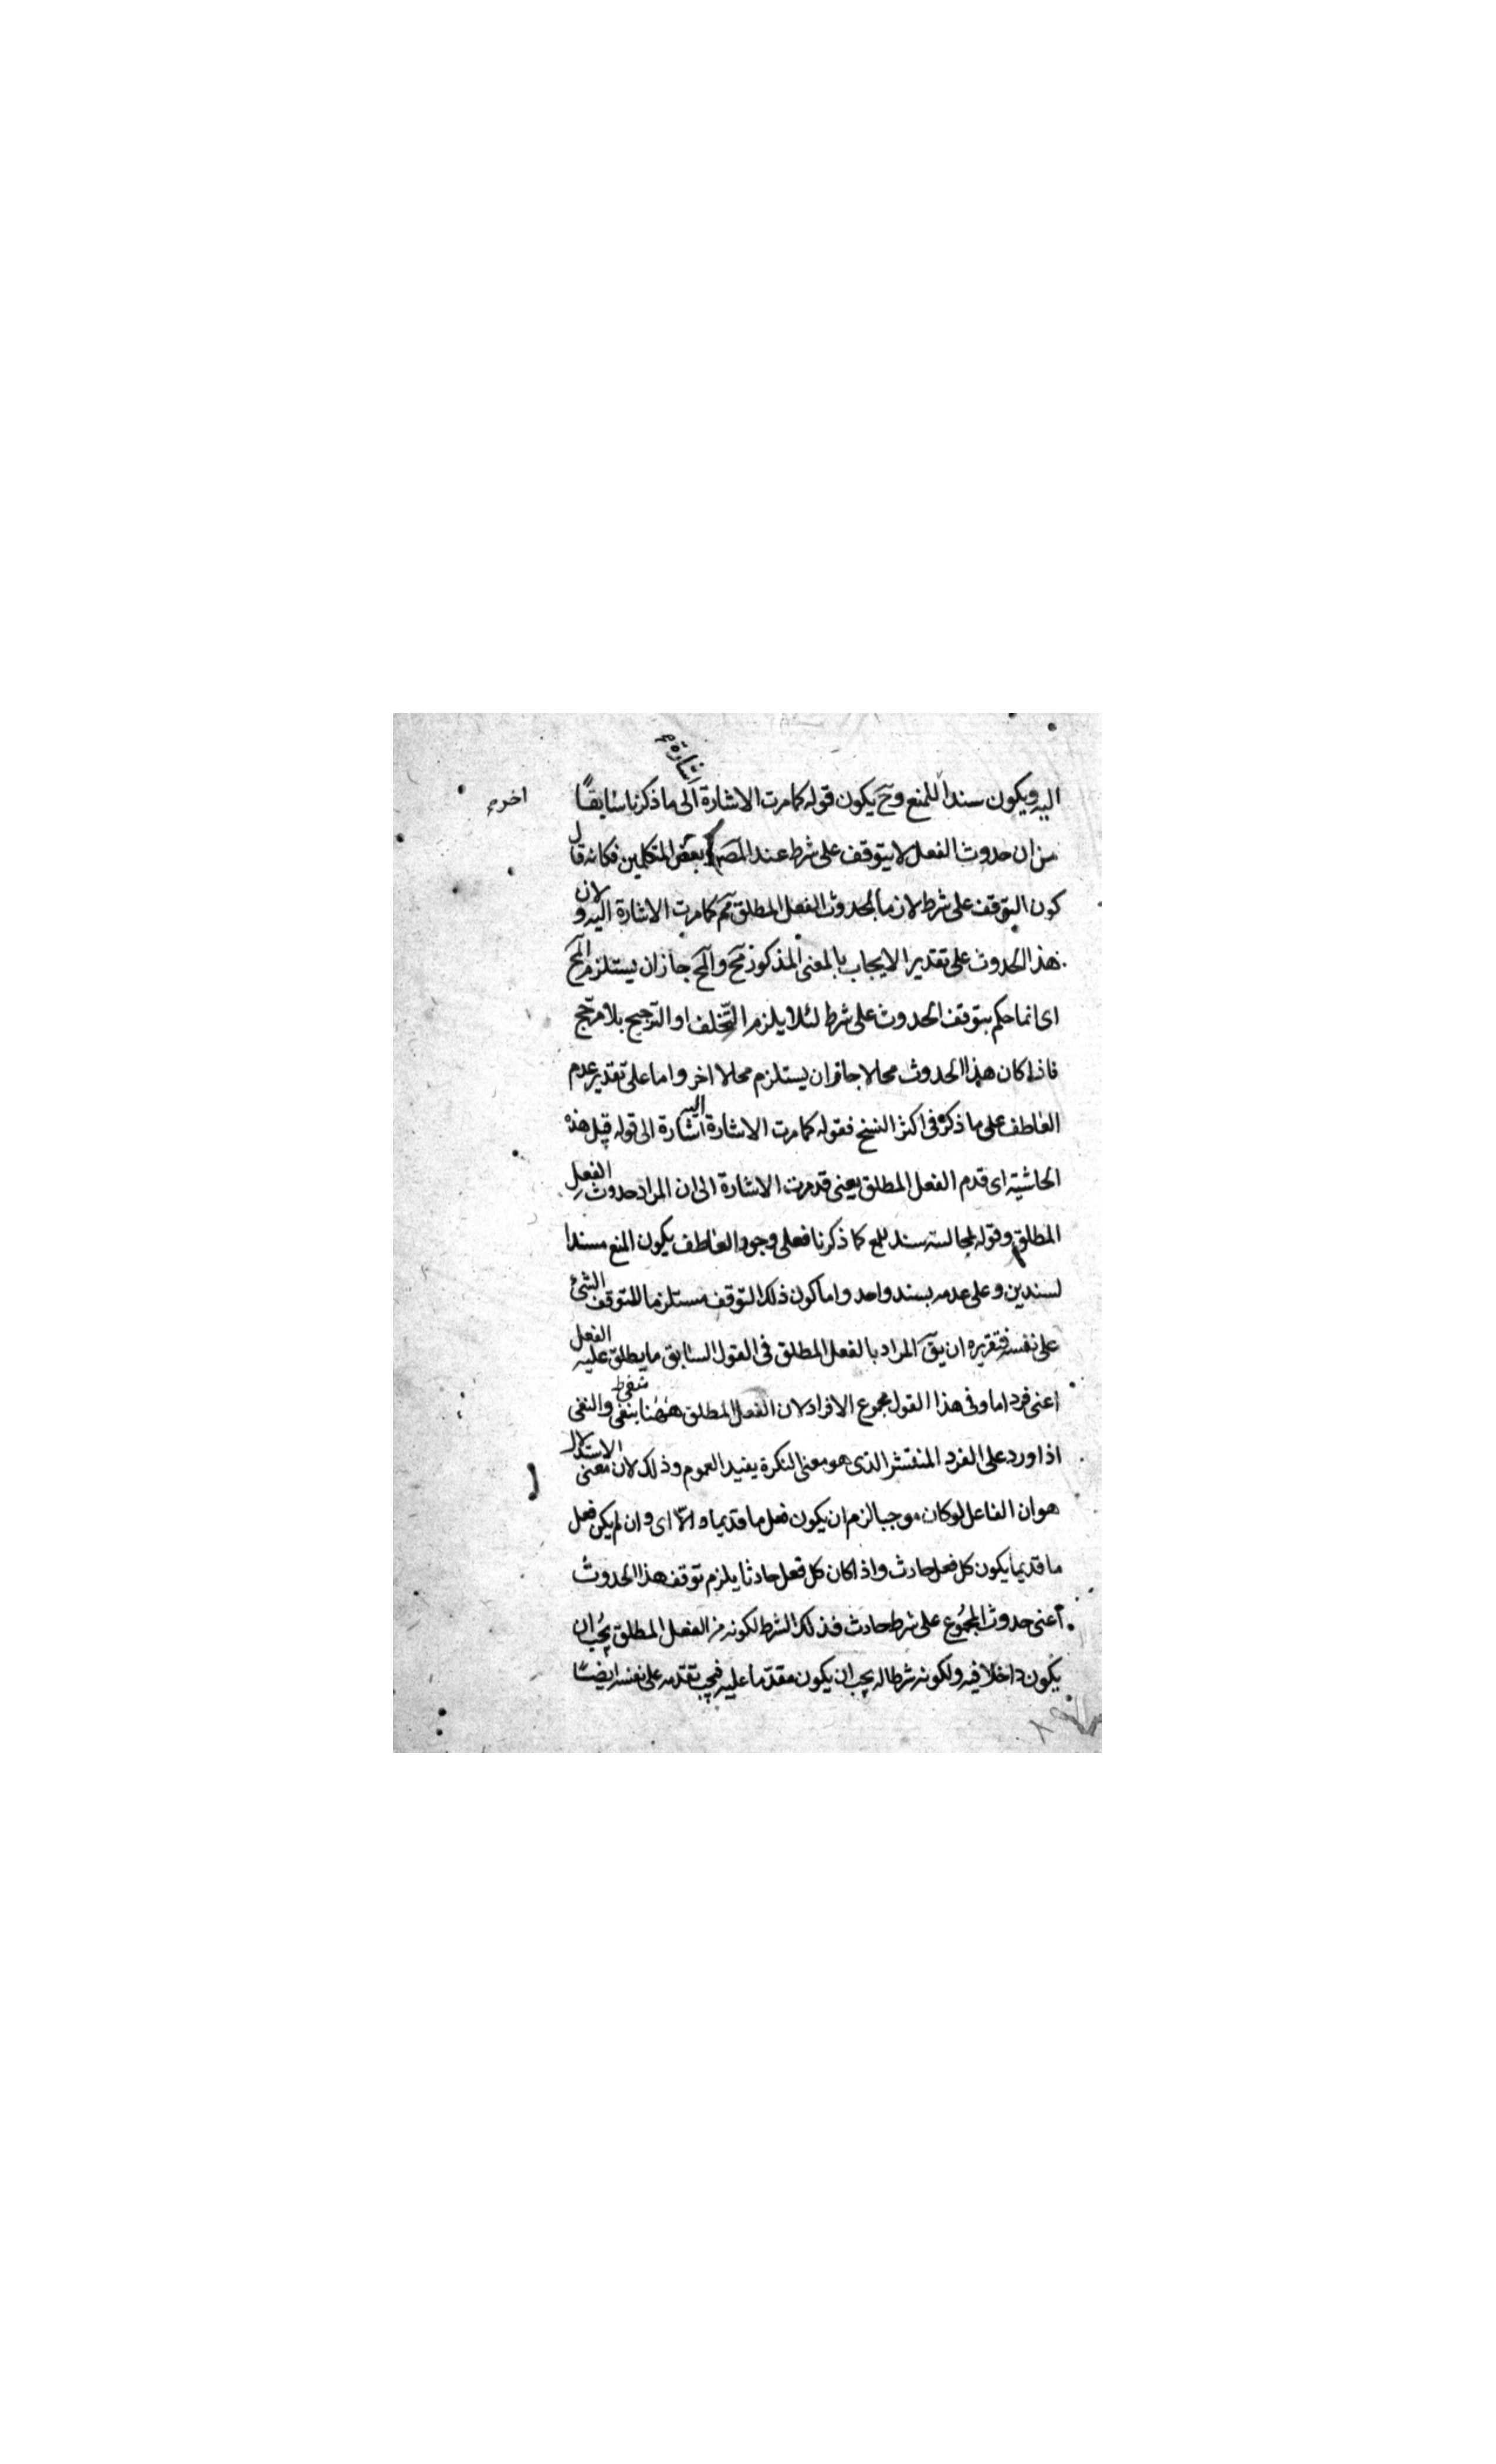 اشارة
اليه ويكون سنداً للمنع وح يكون قوله كما مرت الاشارة الى ما ذكرنا سابقاً
اخر
من ان حدوث الفعل لا يتوقف على شرط عند المصَ وبعض المتكلمين فكانه قال
كون التوقف على شرط لازما لحدوث الفعل المطلق مم كما مرت الاشارة اليه ولان
هذا الحدوث على تقدير الايجاب بالمعنى المذكور مح والمح جاز ان يستلزم المح
اى انما حكم بتوقف الحدوث على شرط لئلا يلزم التخلف او الترجيح بلا مرجح
فاذا كان هذا الحدوث محالا جاز ان يستلزم محالا اخر واما على تقدير عدم
العاطف على ما ذكره فى اكثر النسخ فقوله كما مرت الاشارة اليه اشارة الى قوله قبيل هذه
الحاشية اى قدم الفعل المطلق يعنى قد مرت الاشارة الى ان المراد حدوث الفعل
المطلق وقوله سند للمنع كما ذكرنا فعلى وجود العاطف يكون المنع مسندا
لسندين وعلى عدمه بسند واحد واما كون ذلك التوقف مستلزما للتوقف الشئ
على نفسه فتقريره ان يقَ المراد بالفعل المطلق فى القول السابق ما يطلق عليه الفعل
اعنى فردا ما وفى هذا القول مجموع الافراد لان الفعل المطلق ههنا والنفى
اذا ورد على الفرد المنتشر الذى هو معنى النكرة يفيد العموم وذلك لان معنى الاستدلال
هو ان الفاعل لو كان موجبا لزم ان يكون فعل ما قديما والّا اى وان لم يكن فعل
ما قديما يكون كل فعل حادث واذا كان كل فعل حادثا يلزم توقف هذا الحدوث
اعنى حدوث المجموع على شرط حادث فذلك الشرط لكونه من الفعل المطلق يجب ان
يكون داخلا فيه ولكونه شرطا له يجب ان يكون مقدما عليه فيجب تقدمه على نفسه ايضا